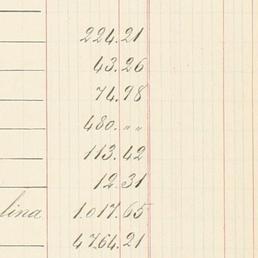 224.21
43.26
74.98
480.〃〃
113.42
12.31
lina 1.017.65
4764.21